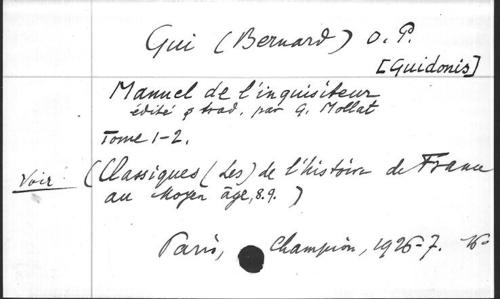 Gui (Bernard) O.P.
[Guidonis]
Manuel de l'inquisiteur
édité & trad. par G. Mollat
Tome 1-2.
Voir: (Classiques (Les) de l'histoire de France
au Moyen âge, 8.9. )
Paris, Champion, 1926-7. 16º